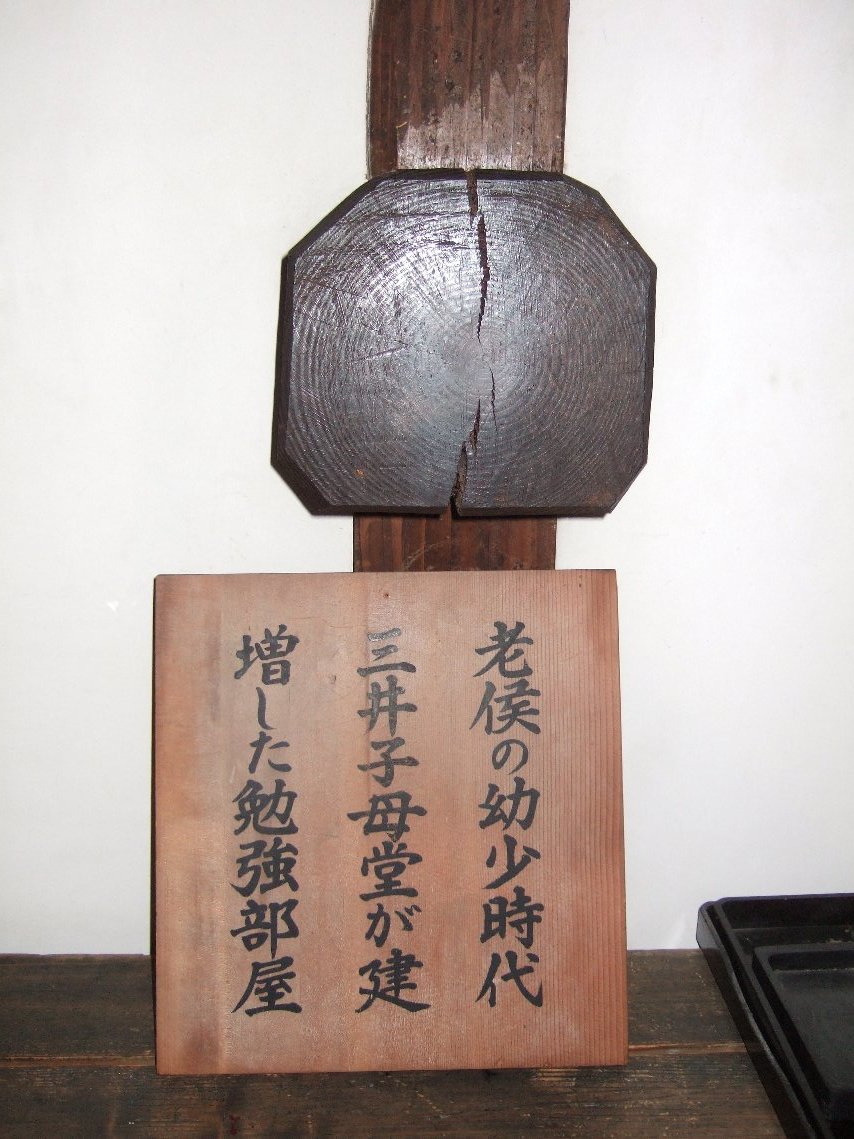 老侯の幼少時代
三井子母堂が建
増した勉強部屋